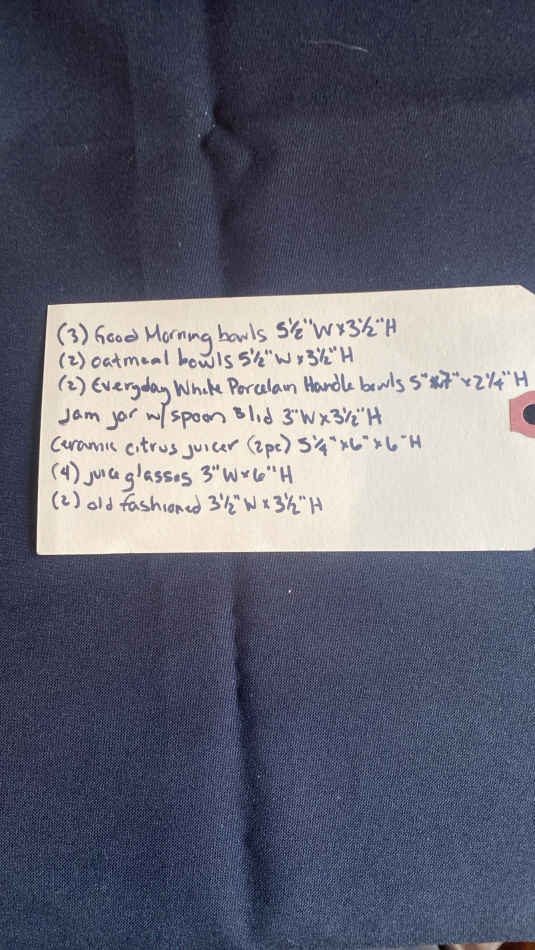 (3) Good Morning bowls 5½"W x 3½"H
(2) oatmeal bowls 5½"W x 3½"H
(2) Everyday White Porcelain Handle bowls 5"x7"x2¼"H
Jam jar w/ spoon & lid 3"W x 3½"H
Ceramic citrus juicer (2pc) 5¼"x6"x6"H
(4) juice glasses 3"W x 6"H
(2) old fashioned 3½"W x 3½"H